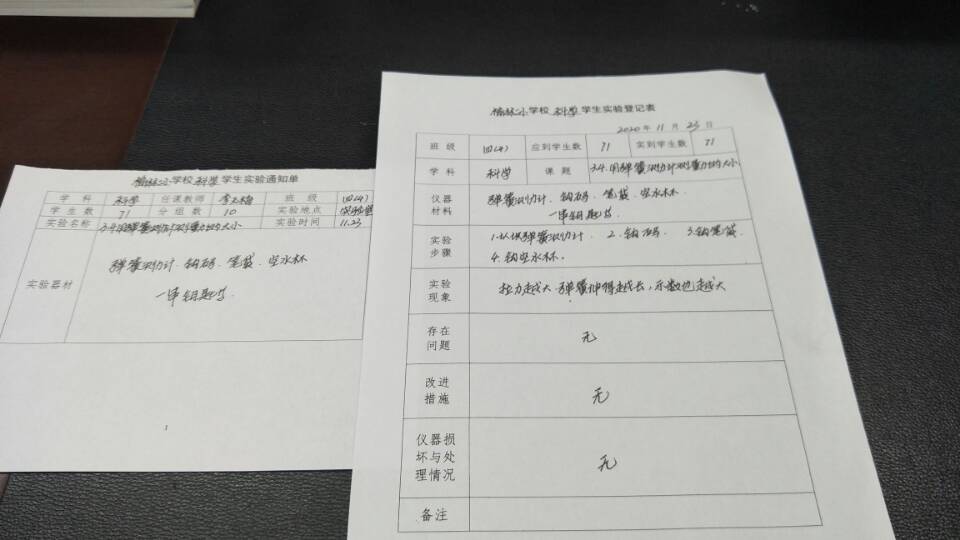 榆林小学校科学学生实验通知单
学 科 科学 任课教师 李玉梅 班 级 四(4)
学 生 数 71 分 组 数 10 实验地点 实验室
实验名称 3.4.用弹簧测力计测量力的大小 实验时间 11.23
实验器材 弹簧测力计、钩码、笔袋、空水杯
一串钥匙等.
1
榆林小学校科学学生实验登记表
2020年11月23日
班 级 四(4) 应到学生数 71 实到学生数 71
学 科 科学 课 题 3.4.用弹簧测力计测量力的大小
仪器 弹簧测力计、钩码、笔袋、空水杯
材料 一串钥匙等.
实验 1.认识弹簧测力计. 2.钩码. 3.钩笔袋.
步骤 4.钩空水杯.
实验 拉力越大 弹簧伸得越长,示数也越大
现象
存在 无
问题
改进 无
措施
仪器损
坏与处 无
理情况
备注